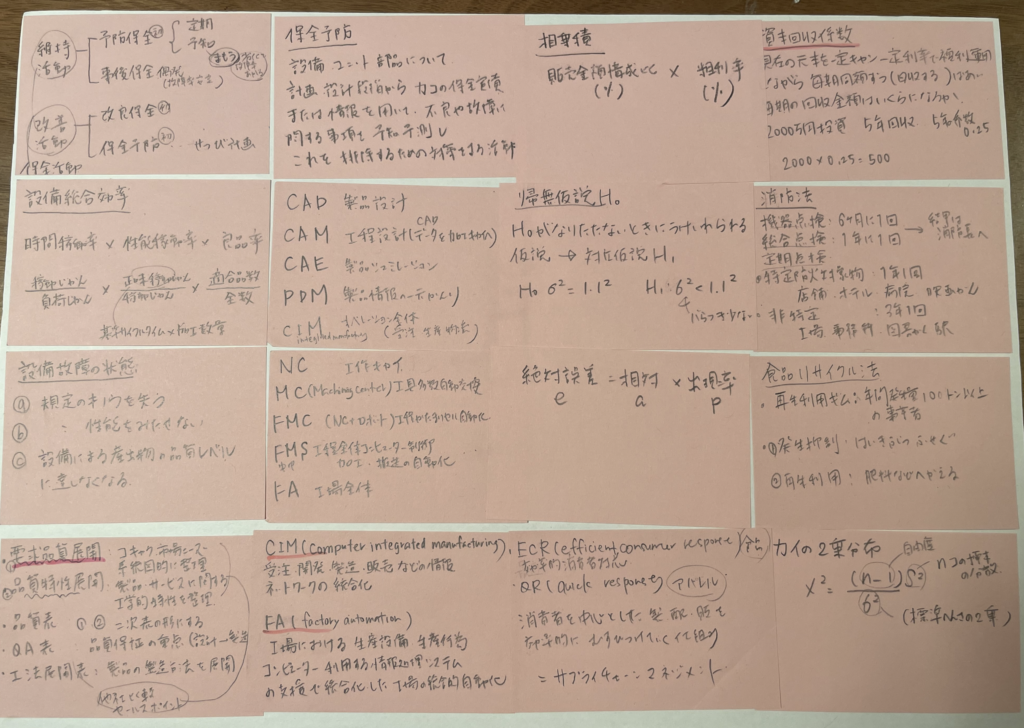 維持
活動
予防保全
定期
予知
事後保全
改善
活動
改良保全
保全予防
せつび計画
保全活動
保全予防
設備、ユニット、部品について
計画・設計段階から カコの保全実績
または情報を用いて、不良や故障に
関する事項を予知予測し
これを排除するための対策をする活動
相乗積
販売金額構成比 × 粗利率
(%) (%)
資本回収係数
現在の元本を一定キャン一定利率で複利運用
しながら毎期同額ずつ(回収する)ばあい
毎期の回収金額はいくらになるか
2000万円投資 5年回収 5年係数
0.25
2000×0.25=500
設備総合効率
時間稼動率 × 性能稼動率 × 良品率
稼動じかん
負荷じかん
×
正味稼動じかん
稼動じかん
×
適合品数
全数
基準サイクルタイム×加工数量
CAD 製品設計
CAD
CAM 工程設計(データを加工
CAE 製品シュミレーション
PDM 製品情報の一元かんり
CIM オペレーション全体
integlated manufactuaring
帰無仮説 H₀
H₀がなりたたないときにうけいれられる
仮説 → 対立仮説 H₁
H₀ б²=1.1² H₁:б²<1.1²
ばらつき少ない
消防法
機器点検:6ヶ月に1回
総合点検:1年に1回
→ 結果は
消防署へ
定期点検
・特定防火対象物:1年1回
店舗・ホテル・病院 映画かん
・非特定 :3年1回
工場 事務所 図書かん 駅
設備故障の状態
ⓐ 規定のキノウを失う
ⓑ 〃 性能をみたせない
ⓒ 設備による産出物の品質レベル
に達しなくなる
NC 工作キカイ
MC (Machining center) 工具多数自動交換
FMC (NC+ロボット)
FMS 工程全体コンピューター制御
加工・搬送の自動化
FA 工場全体
絶対誤差 = 相対 × 出現率
e a p
食品リサイクル法
・再生利用ギム:年間発生量100トン以上
の事業者
①発生抑制:はいきぶつふせぐ
②再生利用:肥料などへかえる
・要求品質展開:コキャク、市場ニーズ
手系図的に整理
・品質特性展開:製品・サービスに関する
工学的特性を整理
・品質表 ①②二次表の形にする
・QA表 品質保証の重点(設計→製造
・工法展開表:製品の製造方法を展開
他社とくらべ
セールスポイント
CIM (Computer integrated manufacturing)
受注、開発、製造、販売などの情報
ネットワークの統合化
FA (factory automation)
工場における生産設備・生産行為
コンピューター利用する情報処理システム
の支援で統合化した工場の総合的自動化
・ECR (efficient consumer response)
効率的消費者対応
・QR (quick response) アパレル
消費者を中心とした製・配・販を
効率的にむすびつけていく仕組
= サプライチェーンマネジメント
カイの2乗分布
自由度
x² = (n-1)S²
б²
nコの標本
の分散
(標準へんさの2乗)